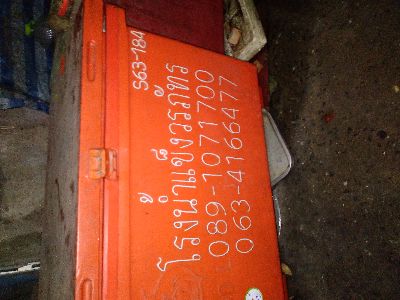 S63-184
โรงน้ำแข็งวรภัทร
089-1071700
063-4166477